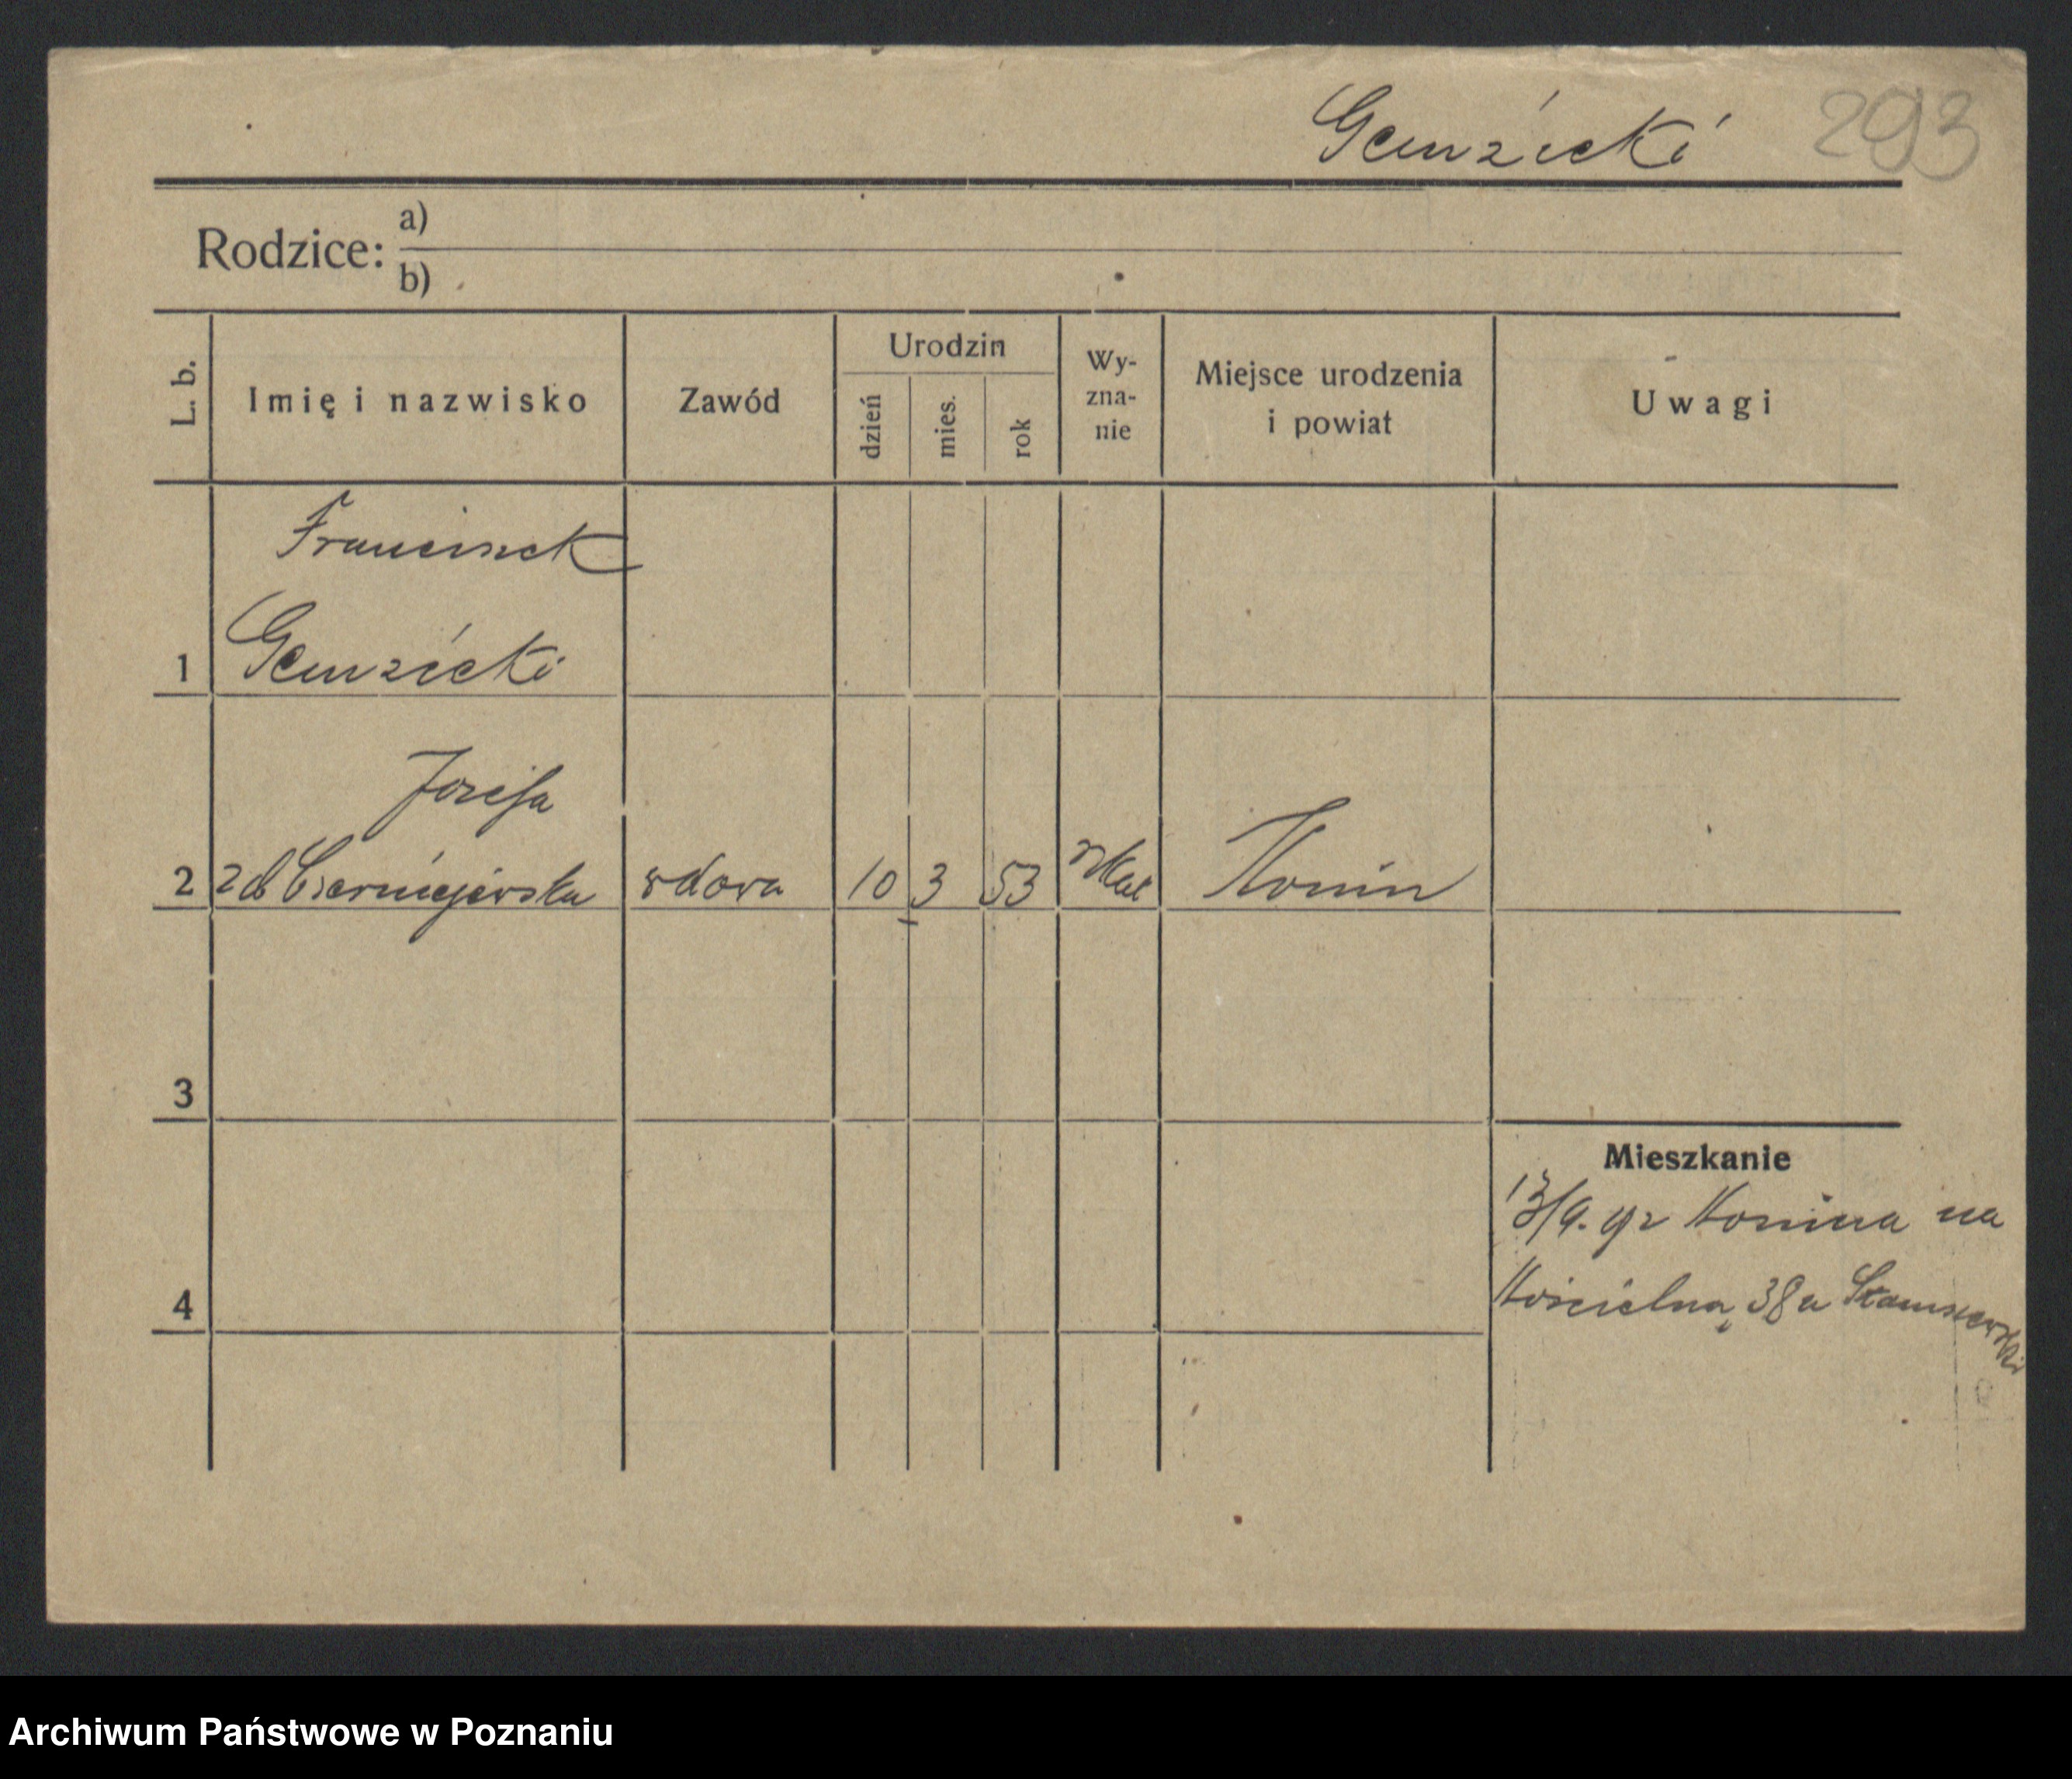 Gemzicki 293
Rodzice: a)
b)
L. b. Imię i nazwisko Zawód Urodzin dzień mies. rok Wy-zna-nie Miejsce urodzenia i powiat Uwagi
Franciszek
1 Gemzicki
Józefa
2 zd Czerniejewska wdowa 10 3 53 rzkat Konin
3
Mieszkanie
13/9. z Konina na
4 Kościelna 38 a Staniszewski
Archiwum Państwowe w Poznaniu